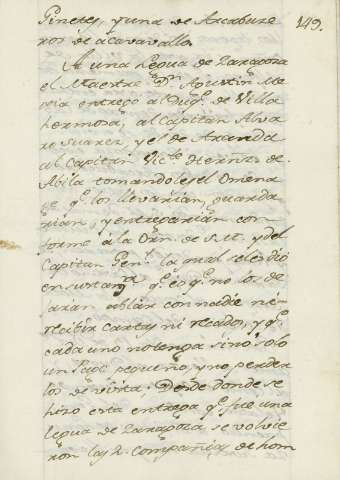 Ginetes, y una de Arcabuze 149.
ros de acavavallo.
A una legua de Zaragoza
el Maestre Dn. Agustin Me
xia entrego al Duq. de Villa
hermosa, al Capitan Alva
ro Suarez, y el de Aranda
al Capitan Hernz. de
Abila tomandoles el Omena
ge q. los llevarian, guarda
rian, y entregarian con
forme á la Orn. de S. M. y del
Capitan Genl. la qual se les dió
en q. es q. no los de
jaran ablar con nadie ni
recibir cartas ni recados, y q.
cada uno no tenga sino solo
un Page pequeño, y no perder
los de vista; Desde donde se
hizo esta entrega q. fue una
legua de Zaragoza se volvie
ron las 2. compañias de hom